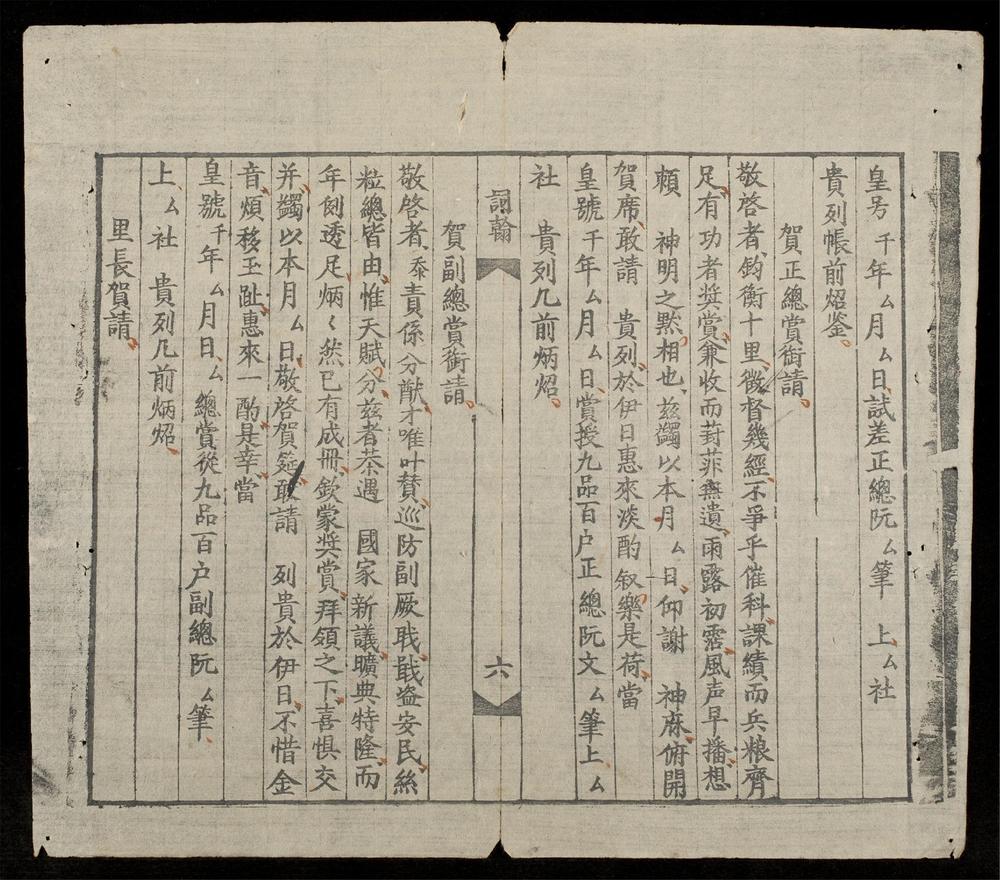 皇号千年厶月厶日試差正總阮厶筆　上厶社
貴列帳前炤鉴
賀正總賞銜請
敬啓者鈞衡十里徵督幾經不爭乎催科課績而兵粮齊
足有功者奨賞兼收而葑菲無遺雨露初霑風声早播想
頼　神明之黙相也兹蠲以本月厶日仰謝　神庥俯開
賀席敢請　貴列於伊日惠來淡酌叙樂是荷當
皇號千年厶月厶日賞授九品百户正總阮文厶筆上厶
社　貴列几前炳炤
詞翰
六
賀副總賞銜請
敬啓者忝責係分猷才唯叶賛巡防副厥戢盗安民絲
粒總皆由惟天賦分兹者荼遇　國家新議曠典特隆而
年刽透足炳〻然已有成冊欽蒙奨賞拜領之下喜惧交
并蠲以本月厶日敬啓賀筵敢請　列貴於伊日不惜金
音煩移玉趾惠來一酌是幸當
皇號千年厶月日厶總賞從九品百户副總阮厶筆
上厶社　貴列几前炳炤
里長賀請